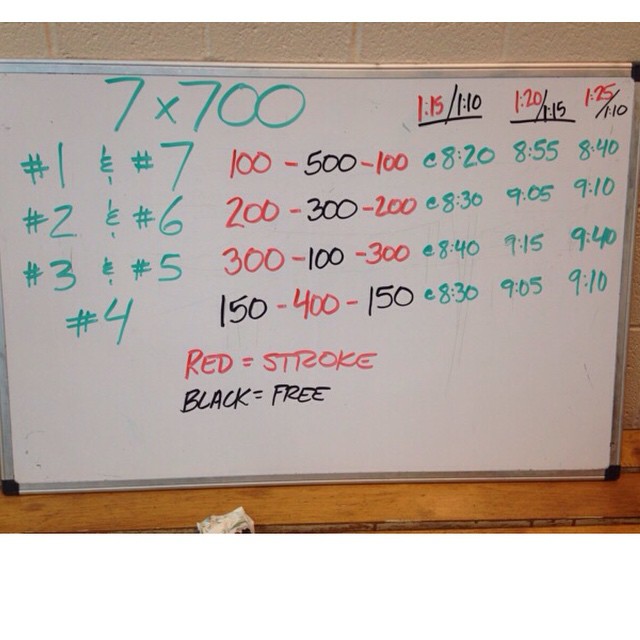 7x700 1:15/1:10 1:20/1:15 1:25/1:10
#1 & #7 100 - 500 - 100 @ 8:20 8:55 8:40
#2 & #6 200 - 300 - 200 @ 8:30 9:05 9:10
#3 & #5 300 - 100 - 300 @ 8:40 9:15 9:40
#4 150 - 400 - 150 @ 8:30 9:05 9:10
RED = STROKE
BLACK = FREE